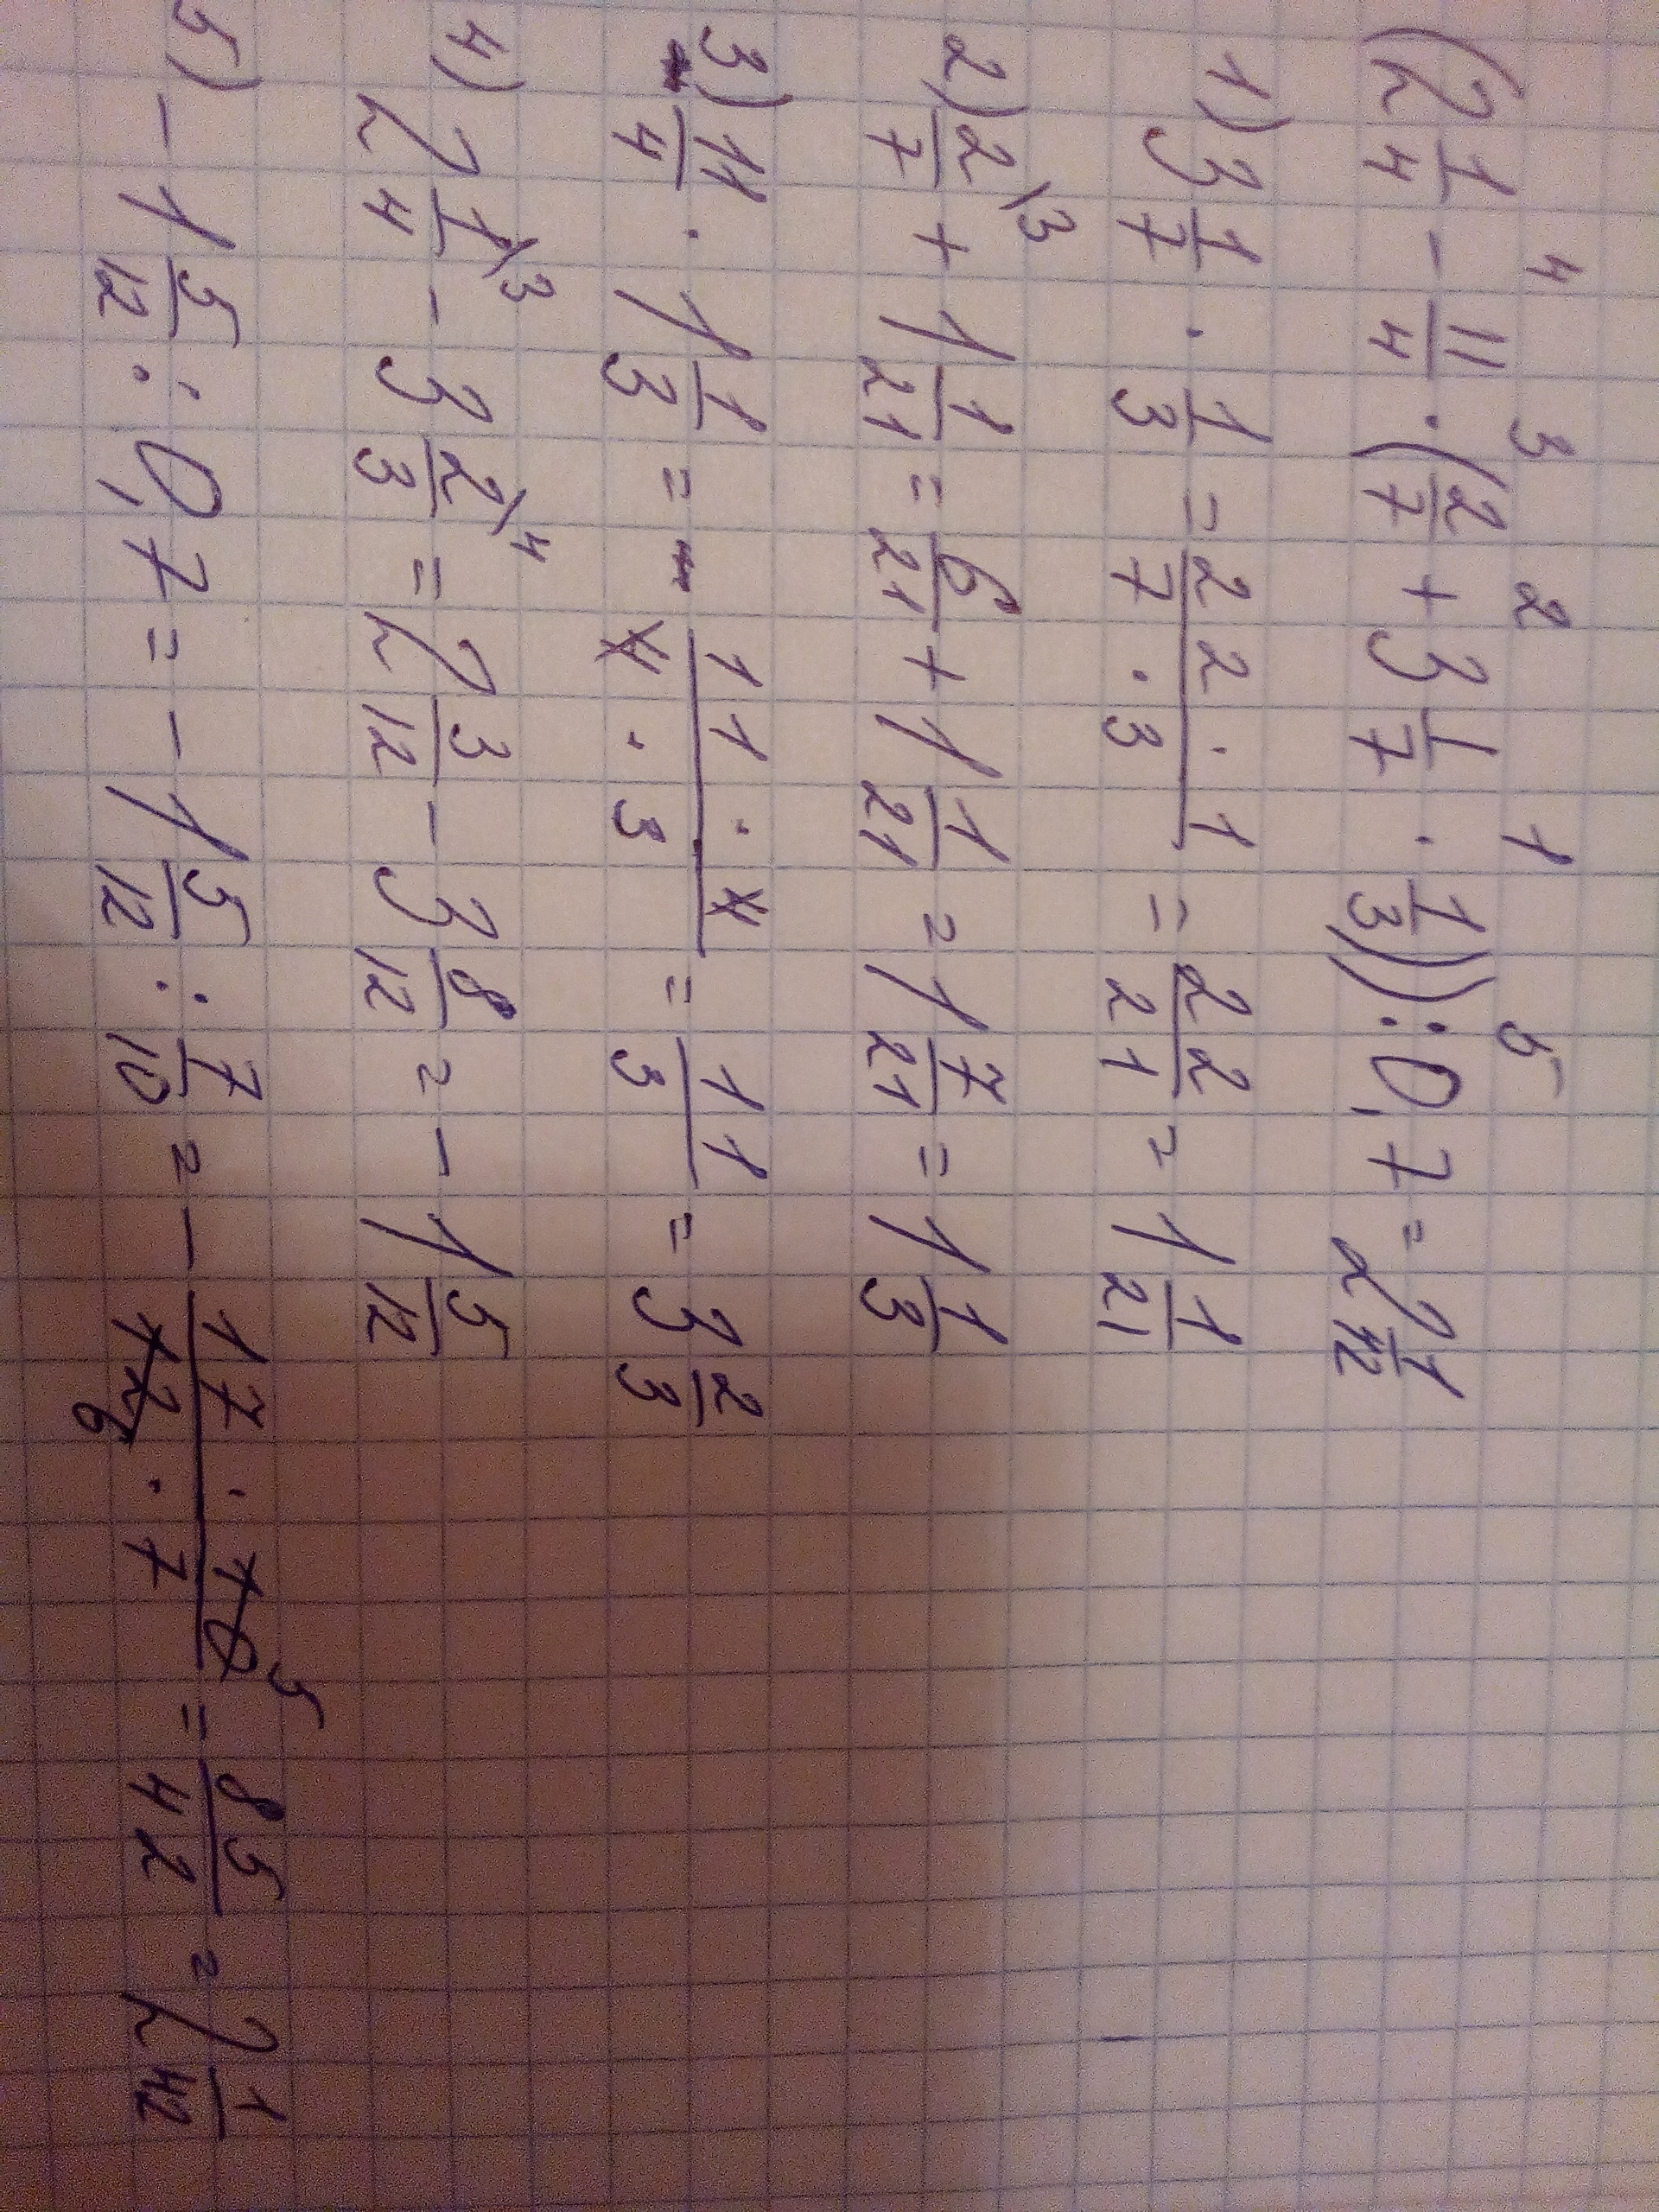 (2 1/4 - 11/4 · (2/7 + 3 1/7 · 1/3)) : 0,7 = 2 1/42
4 3 2 1 5
1) 3 1/7 · 1/3 = 22 · 1/7 · 3 = 22/21 = 1 1/21
2) 2/7 \3 + 1 1/21 = 6/21 + 1 1/21 = 1 7/21 = 1 1/3
3) 11/4 · 1 1/3 = 11 · 4/4 · 3 = 11/3 = 3 2/3
4) 2 1/4 \3 - 3 2/3 \4 = 2 3/12 - 3 8/12 = - 1 5/12
5) - 1 5/12 : 0,7 = - 1 5/12 : 7/10 = - 17 · 10 5/12 6 · 7 = 85/42 = 2 1/42